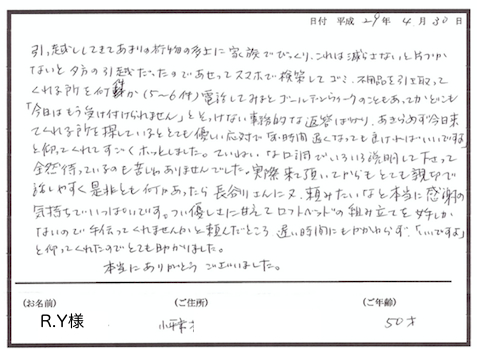 日付 平成 29年 4月 30日
引っ越ししてきてあまりの荷物の多さに家族でびっくり、これは減らさないと片づか
ないと夕方の引越だったのであせってスマホで検索してゴミ、不用品を引き取って
くれる所を何件か(5〜6件)電話してみるとゴールデンウィークのこともあってかどこも
「今日はもう受け付けられません」ととっけない事務的な返答ばかり、あきらめず今日来
てくれる所を探しているととても優しい応対で「夜時間遅くなっても良ければいいですよ」
と仰ってくれてすごくホッとしました。ていねいな口調でいろいろ説明して下さって
全然待っているのも苦になりませんでした。実際来て頂いてからもとても親切で
話しやすく是非とも何かあったら長谷川さんに又、頼みたいなと本当に感謝の
気持ちでいっぱいです。つい優しさに甘えてロフトベッドの組み立てを女手しか
ないので手伝ってくれませんかと頼んだところ 遅い時間にもかかわらず、「いいですよ」
と仰ってくれたのでとても助かりました。
本当にありがとう ございました。
(お名前) (ご住所) (ご年齢)
R.Y様 小平市 50才